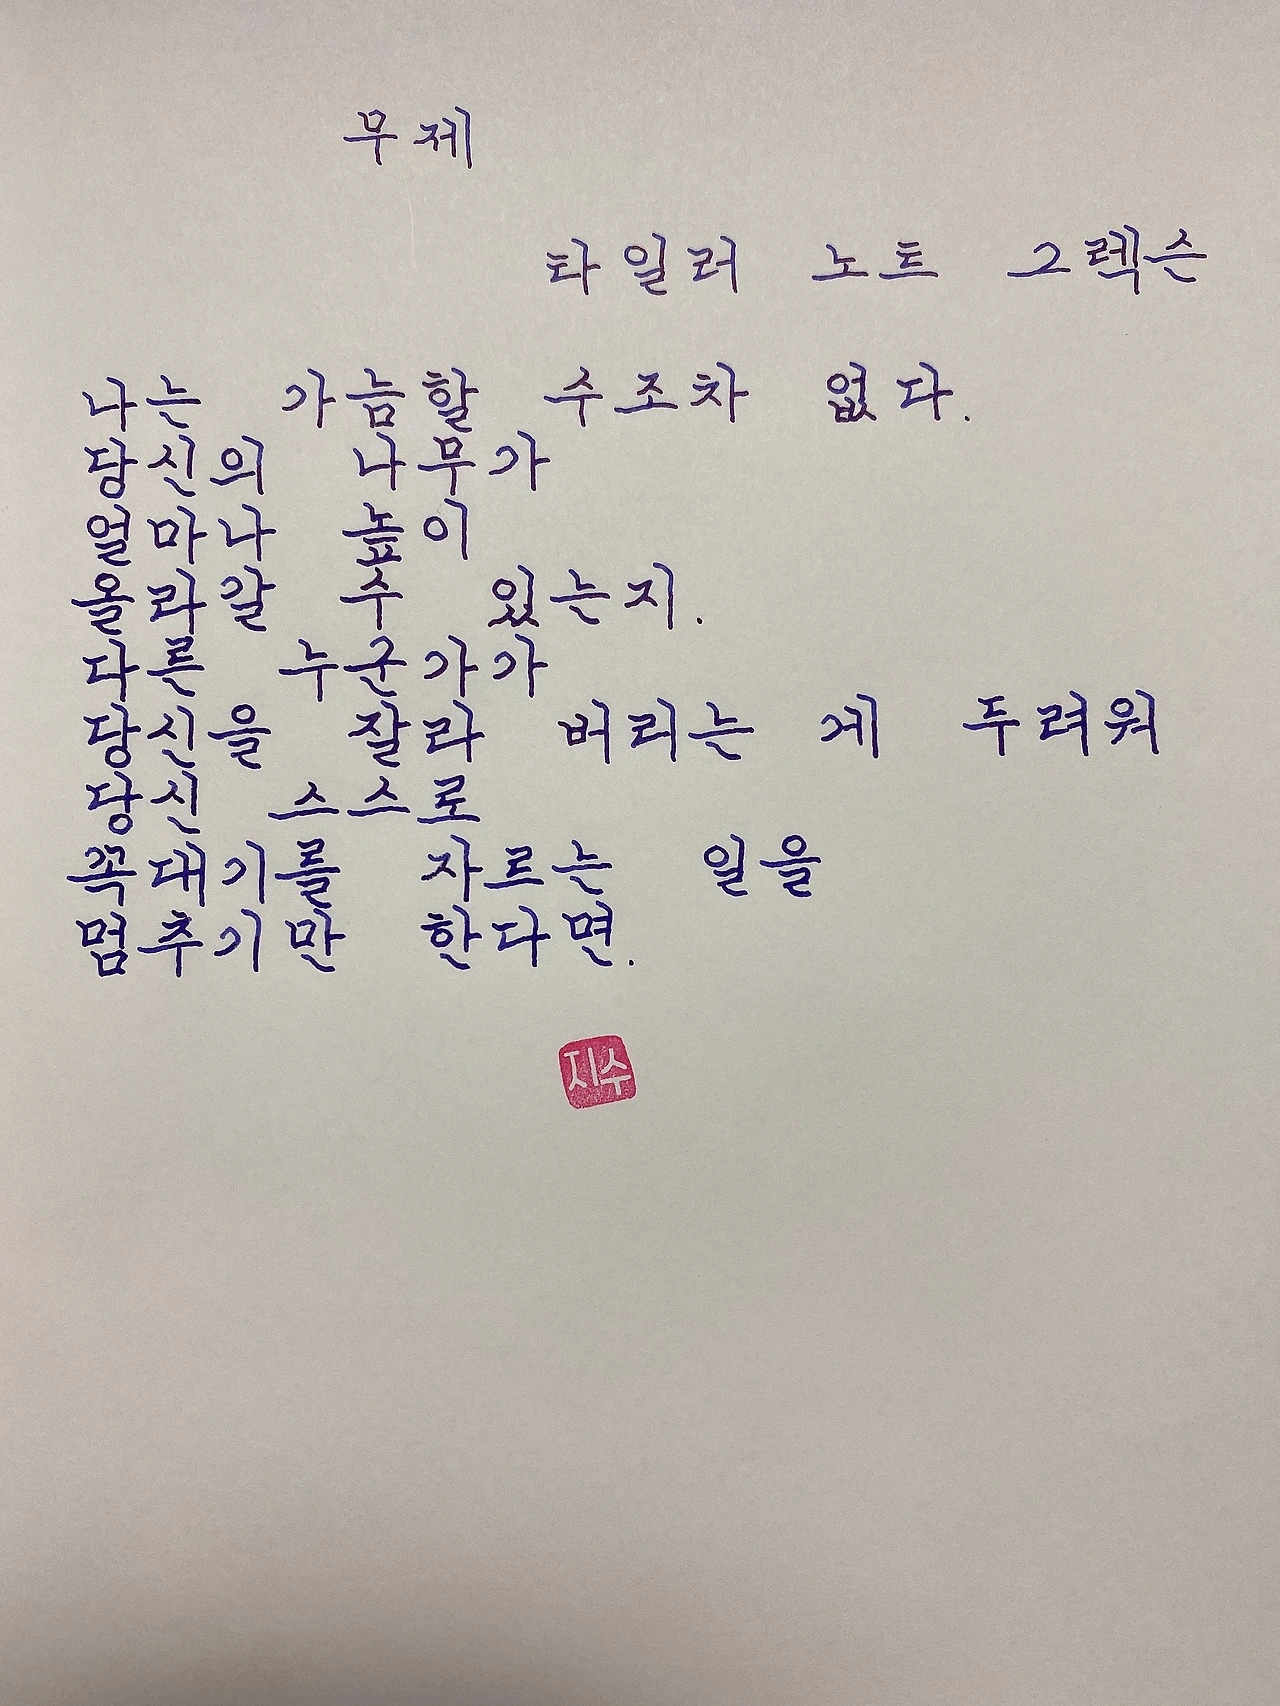 무제
타일러 노트 그렉슨
나는 가늠할 수조차 없다.
당신의 나무가
얼마나 높이
올라갈 수 있는지.
다른 누군가가
당신을 잘라 버리는 게 두려워
당신 스스로
꼭대기를 자르는 일을
멈추기만 한다면.
지수